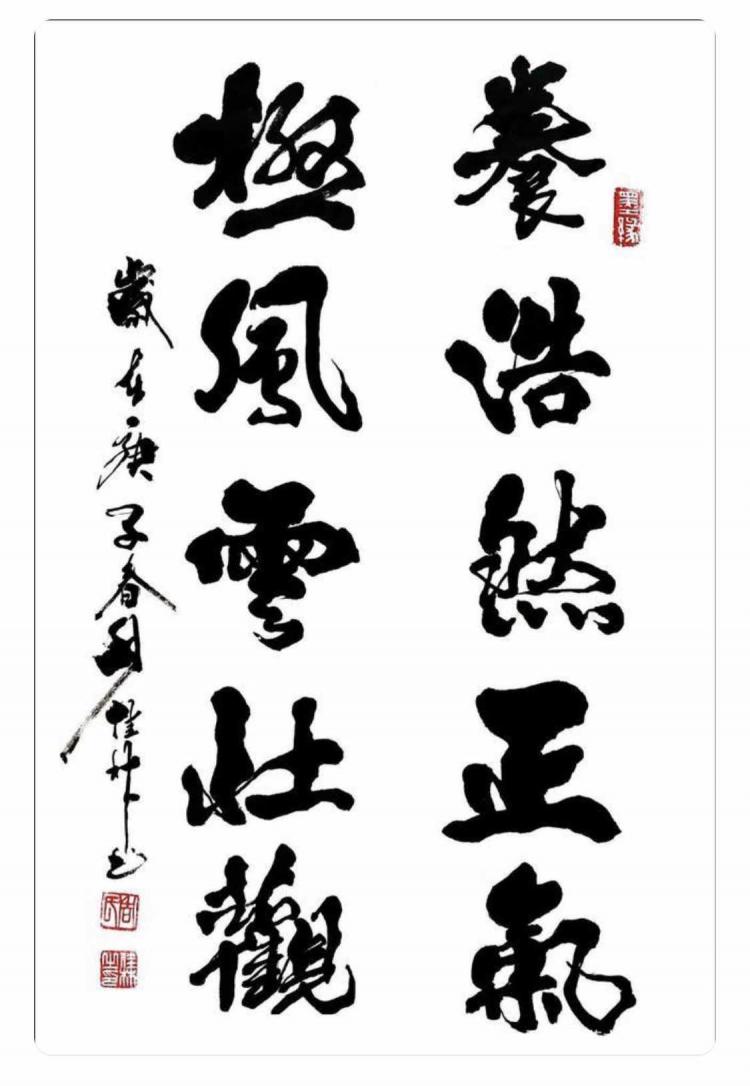 養浩然正氣
極風雲壯觀
歲在庚子春月
書
墨緣